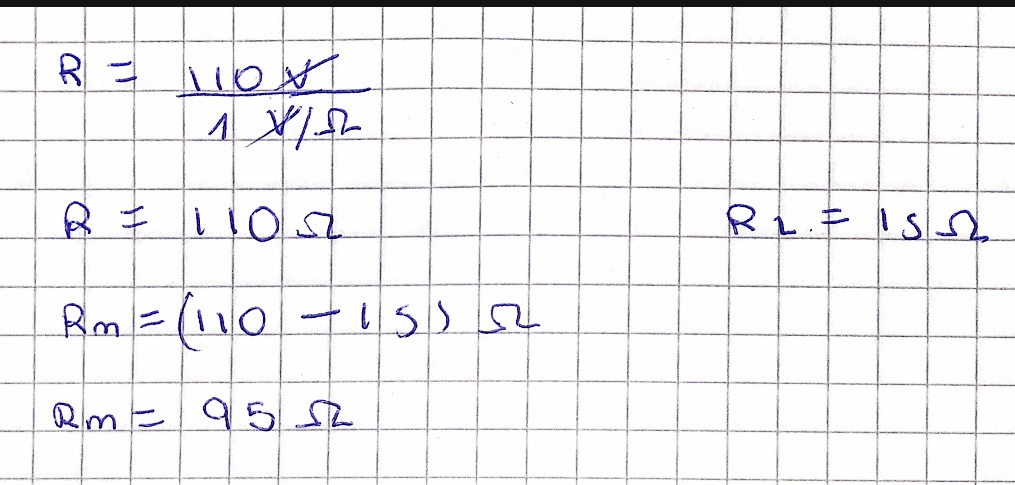 R = 110 V
1 V/Ω
R = 110 Ω
RL = 15 Ω
Rm = (110 - 15) Ω
Rm = 95 Ω